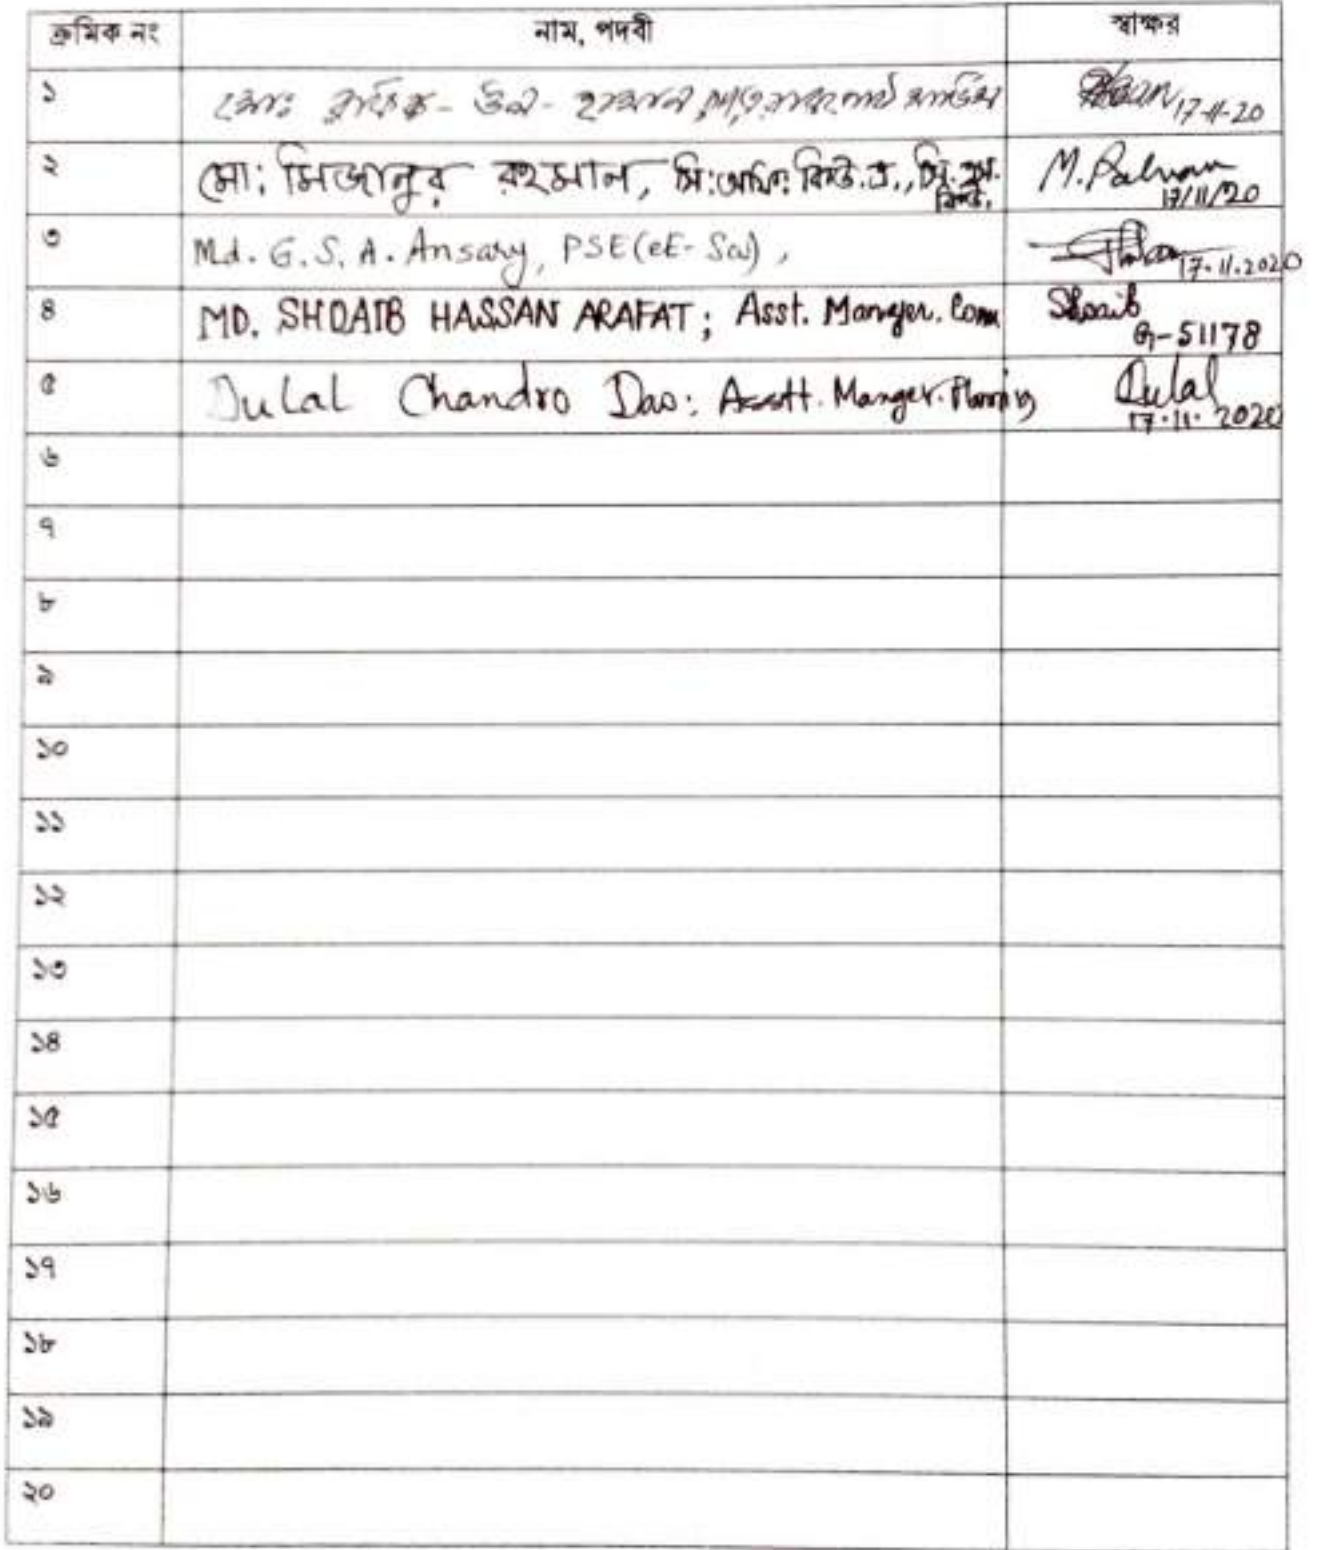 ক্রমিক নং নাম, পদবী স্বাক্ষর
১ মোঃ - উল - হাসান 17-11-20
২ মো: মিজানুর রহমান, M. Rahman
17/11/20
৩ Md. G. S. A. Ansary, PSE
17.11.2020
৪ MD. SHOAIB HASSAN ARAFAT; Asst. Manger. Com Shoaib
G-51178
৫ Dulal Chandro Das: Asstt. Manger. Planning Dulal
17.11.2020
৬
৭
৮
৯
১০
১১
১২
১৩
১৪
১৫
১৬
১৭
১৮
১৯
২০